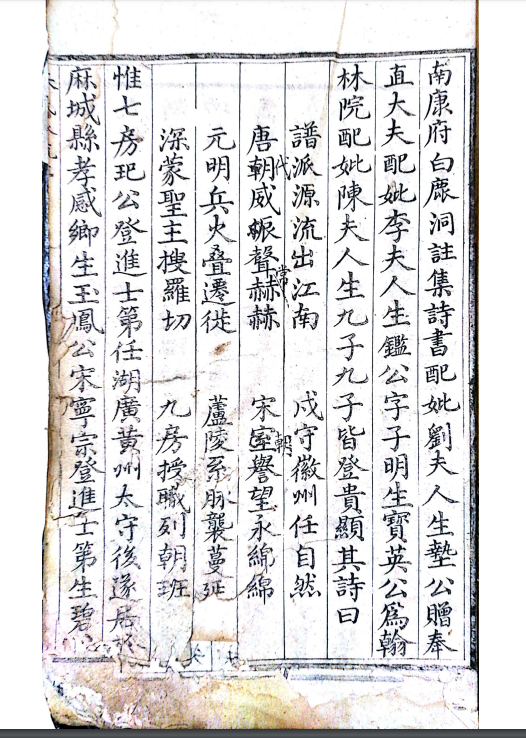 南康府白鹿洞註集詩書配妣劉夫人生塾公贈奉
直大夫配妣李夫人生鑑公字子明生寶英公爲翰
林院配妣陳夫人生九子九子皆登貴顯其詩曰
譜派源流出江南 戍守徽州任自然
唐朝代威振聲赫赫常 宋室朝譽望永綿綿
元明兵火叠遷徙 蘆陵系脉襲蔓延
深蒙聖主搜羅切 九房授職列朝班
惟七房玘公登進士第任湖廣黃州太守後遂居
麻城縣孝感鄉生玉鳳公宋寧宗登進士第生碧